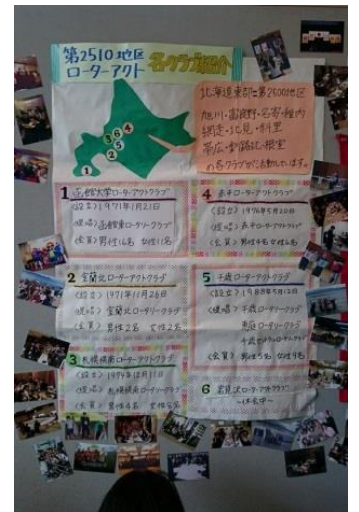 第2510地区
ローターアクト
各クラブ紹介
北海道東部は第2500地区
旭川・富良野・名寄・稚内
網走・北見・斜里
帯広・釧路北・根室
の各クラブが活動しています。
3
6
4
5
2
1
1 函館大学ローターアクトクラブ
<設立>1971年1月21日
<提唱>函館東ロータリークラブ
<会員>男性16名 女性11名
2 室蘭北ローターアクトクラブ
<設立>1971年11月26日
<提唱>室蘭北ロータリークラブ
<会員>男性2名 女性2名
3 札幌幌南ローターアクトクラブ
<設立>1994年12月11日
<提唱>札幌幌南ロータリークラブ
<会員>男性4名
4 赤平ローターアクトクラブ
<設立>1976年5月22日
<提唱>赤平ロータリークラブ
<会員>男性4名 女性6名
5 千歳ローターアクトクラブ
<設立>1988年5月12日
<提唱>千歳ロータリークラブ
恵庭ロータリークラブ
千歳セントラルロータリークラブ
<会員>男性5名 女性9名
6 岩見沢ローターアクトクラブ
～休会中～